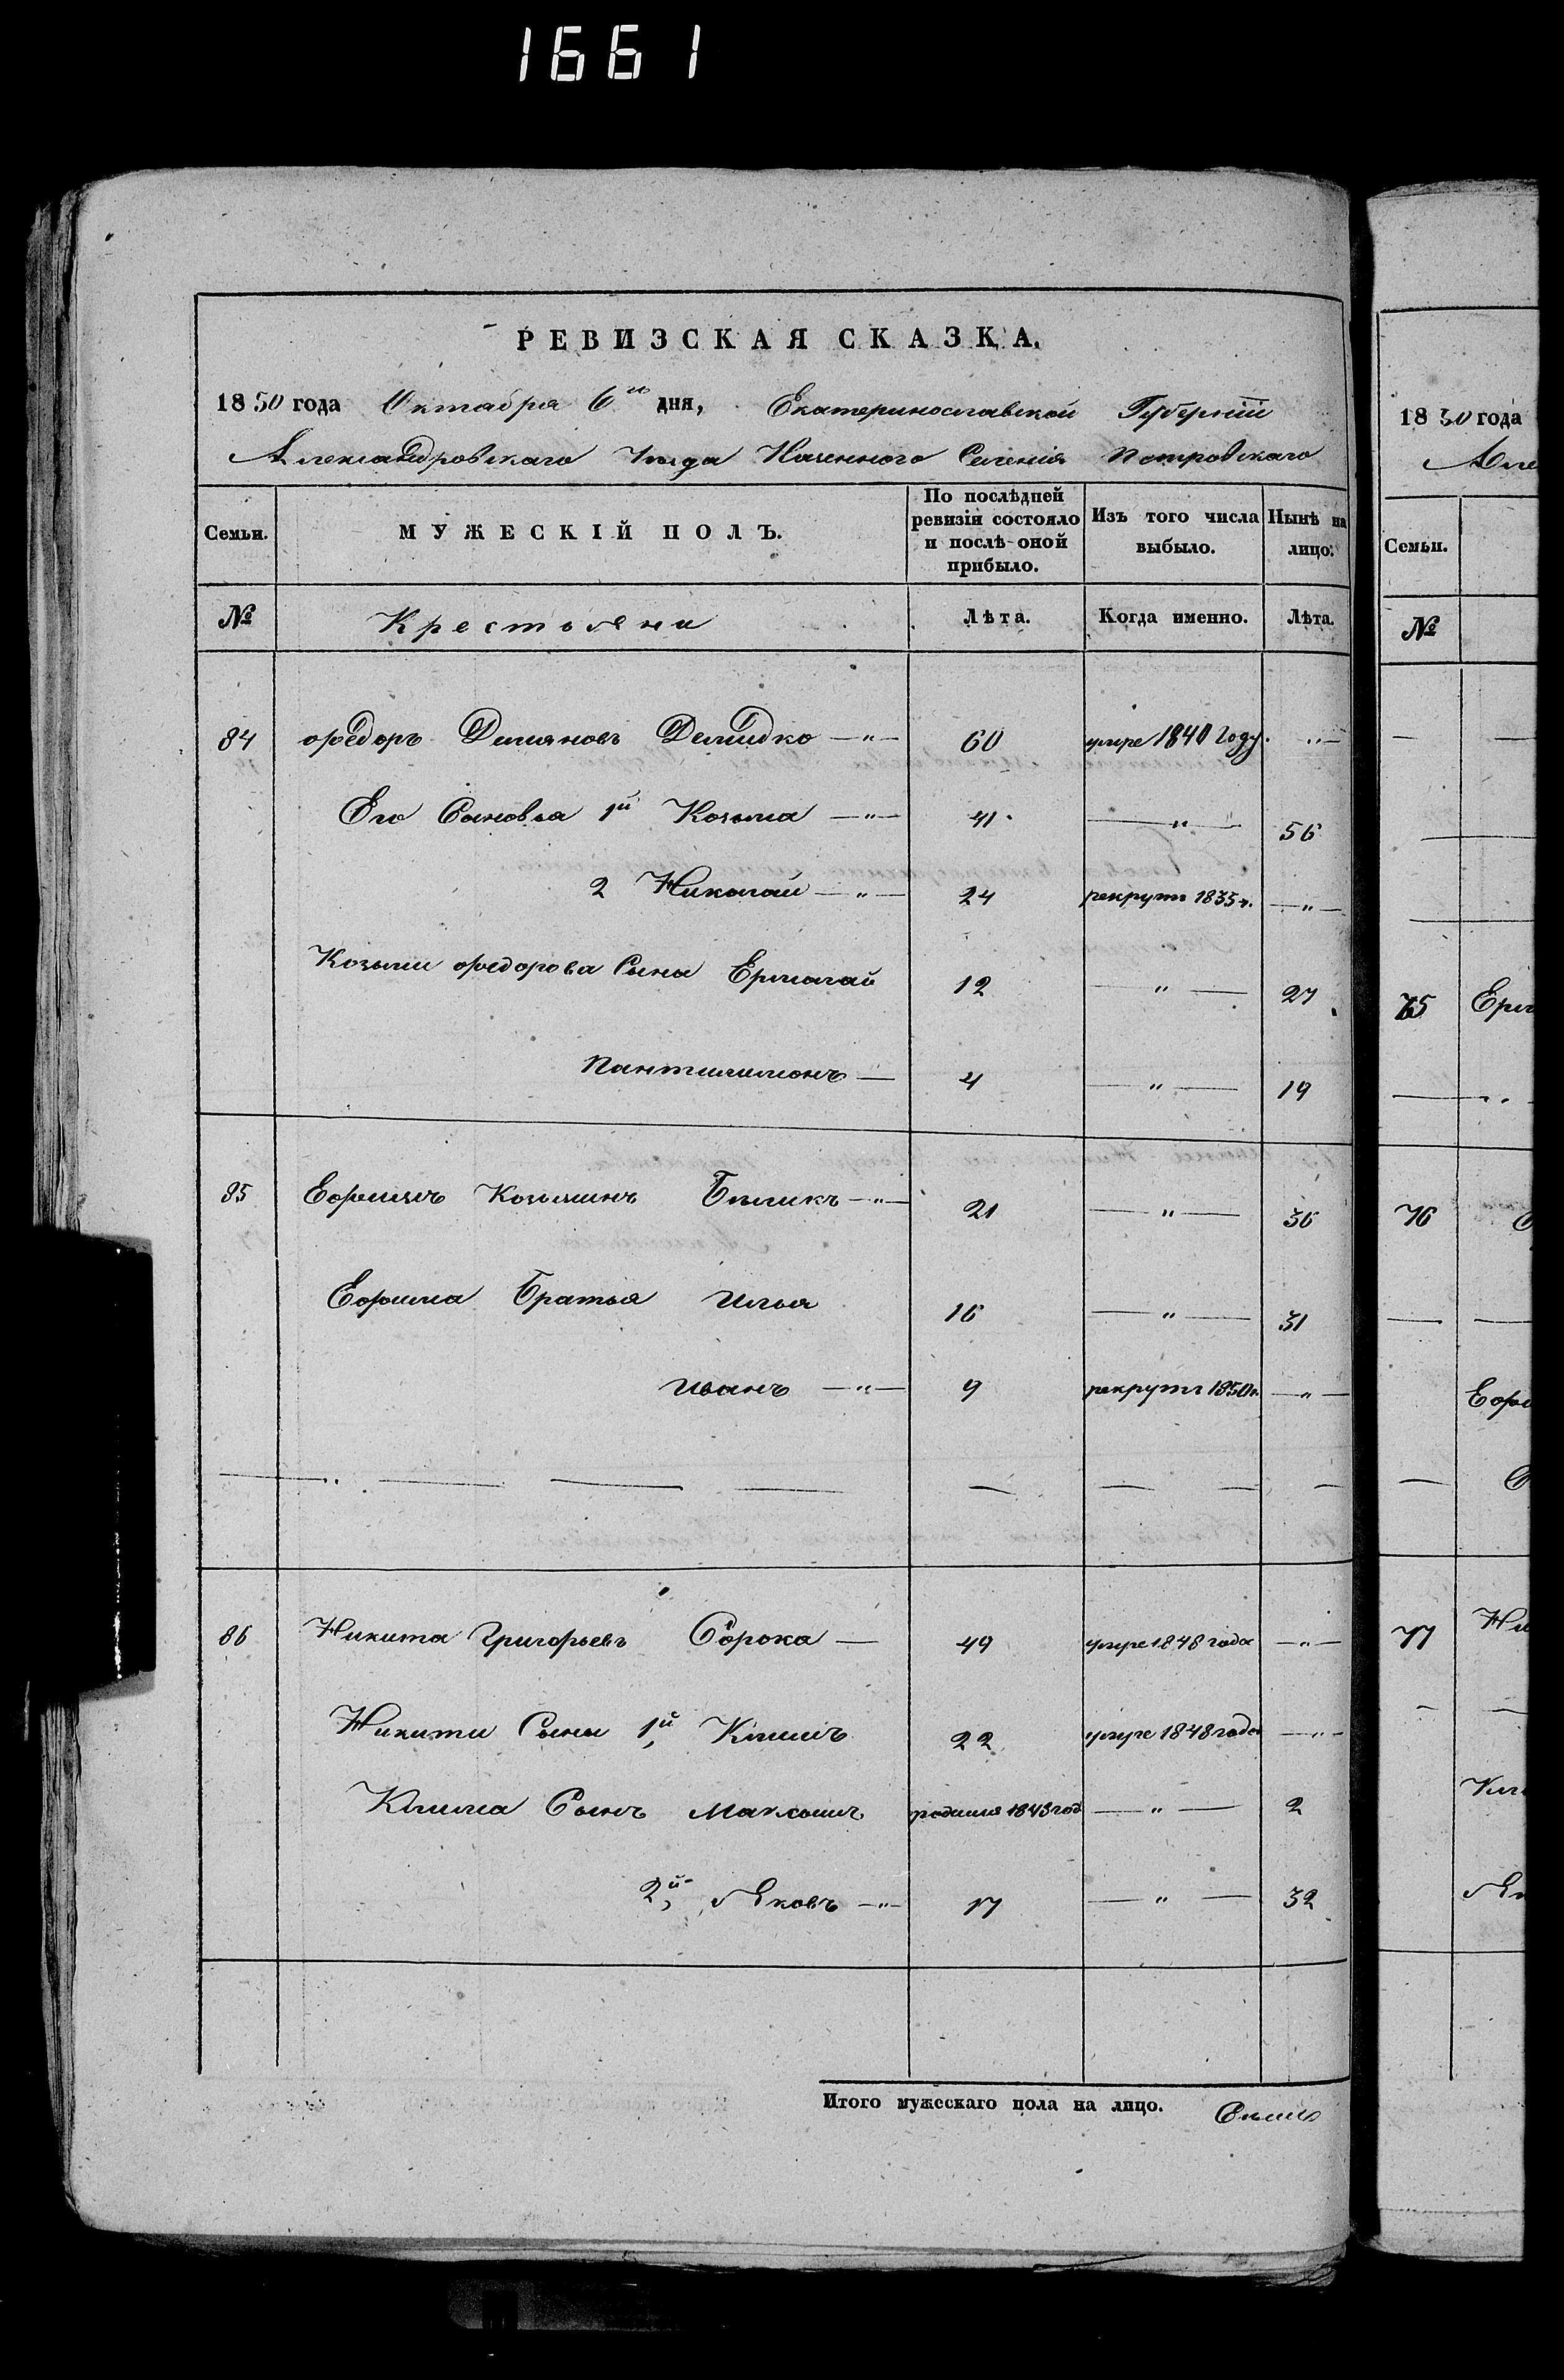 1661
РЕВИЗСКАЯ СКАЗКА.
1850 года Октября 6го дня, Екатеринославской Губерніи
Александровскаго Уезда Казенного Селенія Петровскаго
Семьи. МУЖЕСКІЙ ПОЛЪ. По послѣдней ревизіи состояло и послѣ оной прибыло. Изъ того числа выбыло. Нынѣ на лицо.
№ Крестьяне Лѣта. Когда именно. Лѣта.
84 Федоръ Демяновъ Демидко —"— 60 умре 1840 году. —"—
Его Сыновья 1й Козьма —"— 41 —"— 56
2 Николай —"— 24 рекрутъ 1835 г. —"—
Козьми Федорова Сыны Ермолай 12 —"— 27
Пантилимонъ — 4 —"— 19
85 Ефимъ Козьминъ Биликъ —"— 21 —"— 36
Ефима Братья Илья 16 —"— 31
Иванъ —"— 9 рекрутъ 1850 г. —"—
86 Никита Григорьевъ Сорока — 49 умре 1848 года —"—
Никити Сыны 1й, Климъ 22 умре 1848 года —"—
Клима Сынъ Максимъ родился 1848 год —"— 2
2й, Яковъ —"— 17 —"— 32
Итого мужескаго пола на лицо. Семь
1850 года
Але
Семьи.
№
75 Ерм
76
Ефи
77 Ни
Кли
Як